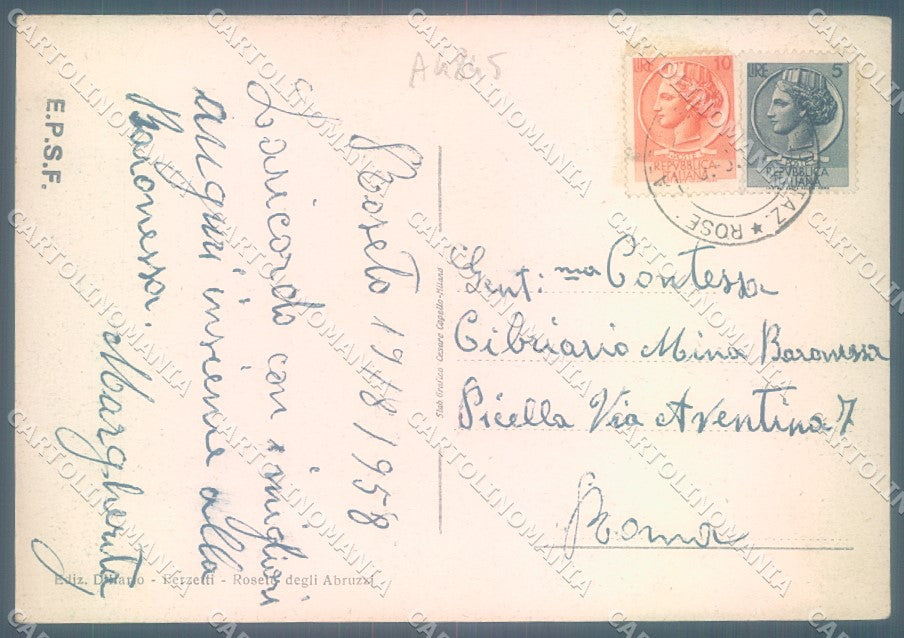 Roseto 19/8/1958
La ricordo con i migliori
auguri insieme alla
Baronessa. Margherita
E.P.S.F.
Ediz. - Perzetti - Roseto degli Abruzzi
Stab. Grafico Cesare Capello-Milano
LIRE 10
REPVBBLICA
ITALIANA
LIRE 5
REPVBBLICA
ITALIANA
TAZ. * ROSE
Gent.ma Contessa
Cibrario Mina Baronessa
Picella Via Aventina 7
Roma
CARTOLINOMANIA